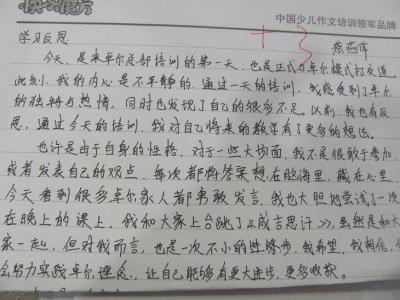 快乐魔方
中国少儿作文培训领军品牌
学习反思
蔡燕萍
今天，是来卓尔总部培训的第一天，也是正式与卓尔模式打交道。
此刻，我的内心是不平静的，通过一天的培训，我感受到了卓尔
的独特与热情，同时也发现了自己的很多不足。以前，我也有反
思，通过今天的培训，我对自己将来的教学有了更多的想法。
也许是由于自身的性格，对于一些大场面，我不是很敢于参加，
或者发表自己的观点，每次都将答案想在脑海里，藏在心里。
今天看到很多卓尔家人都勇敢发言，我也大胆地尝试了一次
在晚上的课上，我和大家上台跳了《成言思汗》，虽然是和大
家一起，但对我而言，也是一次不小的进步，我希望，我相信，
会努力实践卓尔理念，让自己能够有更大进步，更多收获。